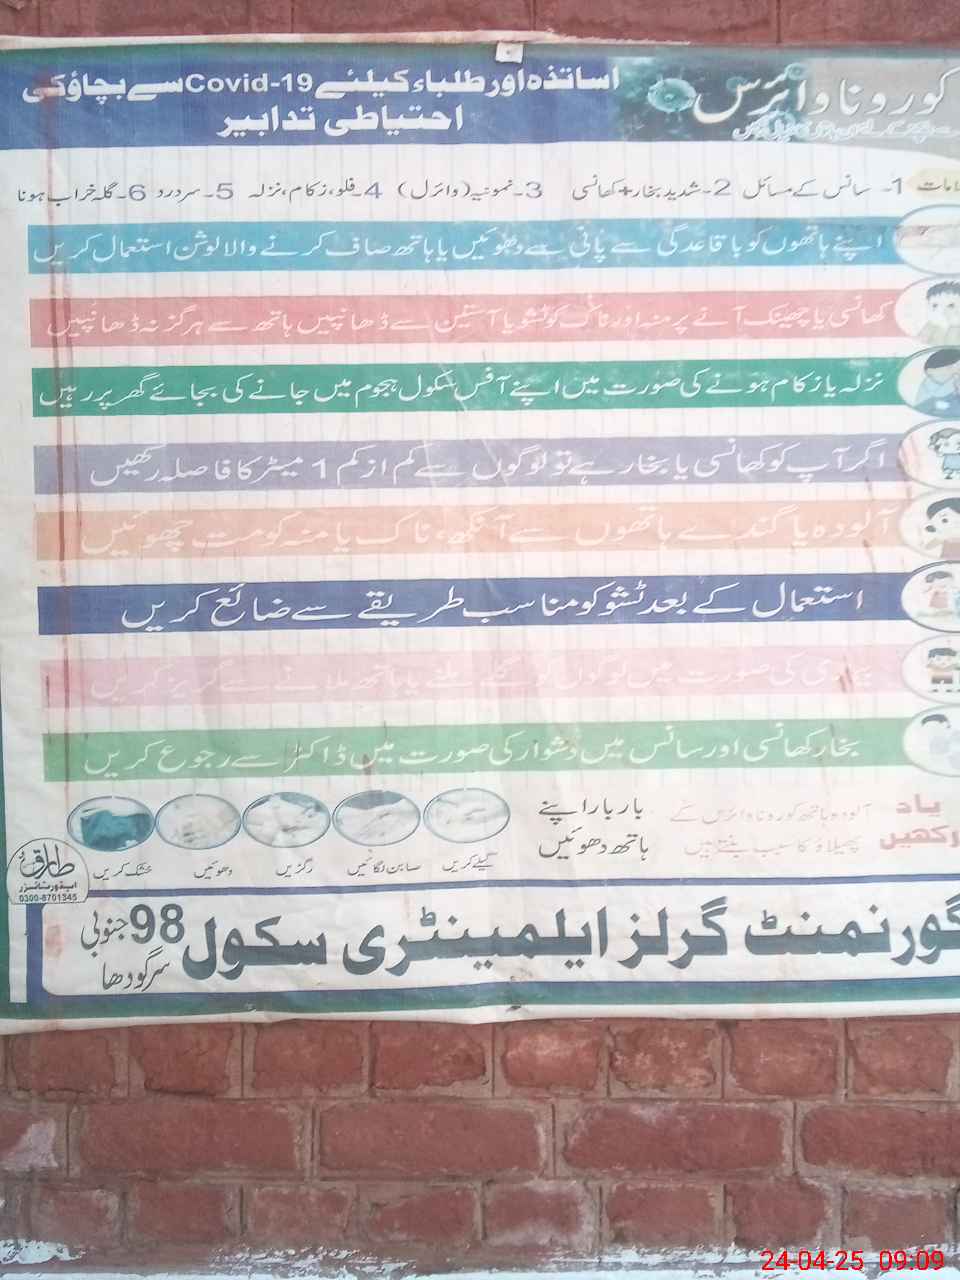 کورونا وائرس
اساتذہ اور طلباء کیلئے Covid-19 سے بچاؤ کی
احتیاطی تدابیر
1- سانس کے مسائل 2- شدید بخار+کھانسی 3- نمونیہ (وائرل) 4- فلو، زکام، نزلہ 5- سر درد 6- گلہ خراب ہونا
اپنے ہاتھوں کو باقاعدگی سے پانی سے دھوئیں یا ہاتھ صاف کرنے والا لوشن استعمال کریں
کھانسی یا چھینک آنے پر منہ اور ناک کو ٹشو یا آستین سے ڈھانپیں ہاتھ سے ہرگز نہ ڈھانپیں
نزلہ یا زکام ہونے کی صورت میں اپنے آفس سکول ہجوم میں جانے کی بجائے گھر پر رہیں
اگر آپ کو کھانسی یا بخار ہے تو لوگوں سے کم از کم 1 میٹر کا فاصلہ رکھیں
آلودہ یا گندے ہاتھوں سے آنکھ، ناک یا منہ کو مت چھوئیں
استعمال کے بعد ٹشو کو مناسب طریقے سے ضائع کریں
بیماری کی صورت میں لوگوں کو گلے ملنے یا ہاتھ ملانے سے گریز کریں
بخار کھانسی اور سانس میں دشوار کی صورت میں ڈاکٹر سے رجوع کریں
یاد رکھیں
آلودہ ہاتھ کورونا وائرس کے
پھیلاؤ کا سبب بنتے ہیں
بار بار اپنے
ہاتھ دھوئیں
گیلے کریں صابن لگائیں رگڑیں دھوئیں خشک کریں
طارق
ایڈورٹائزر
0300-8701345
گورنمنٹ گرلز ایلمینٹری سکول 98 جنوبی
سرگودھا
24-04-25 09:09